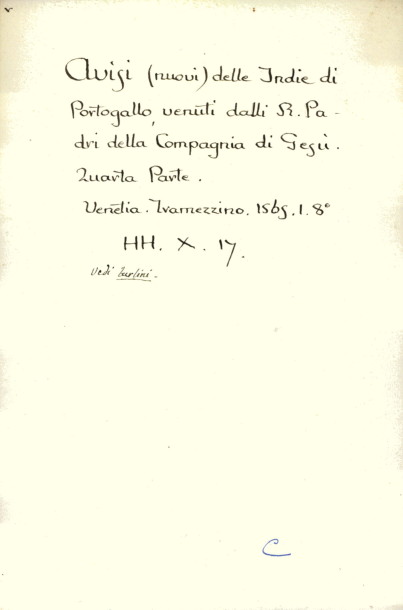 Avisi (nuovi) delle Indie di
Portogallo, venuti dalli R. Pa-
dri della Compagnia di Gesù.
Quarta Parte.
Venetia. Tramezzino. 1565. 1. 8°
HH. X. 17.
Vedi
C